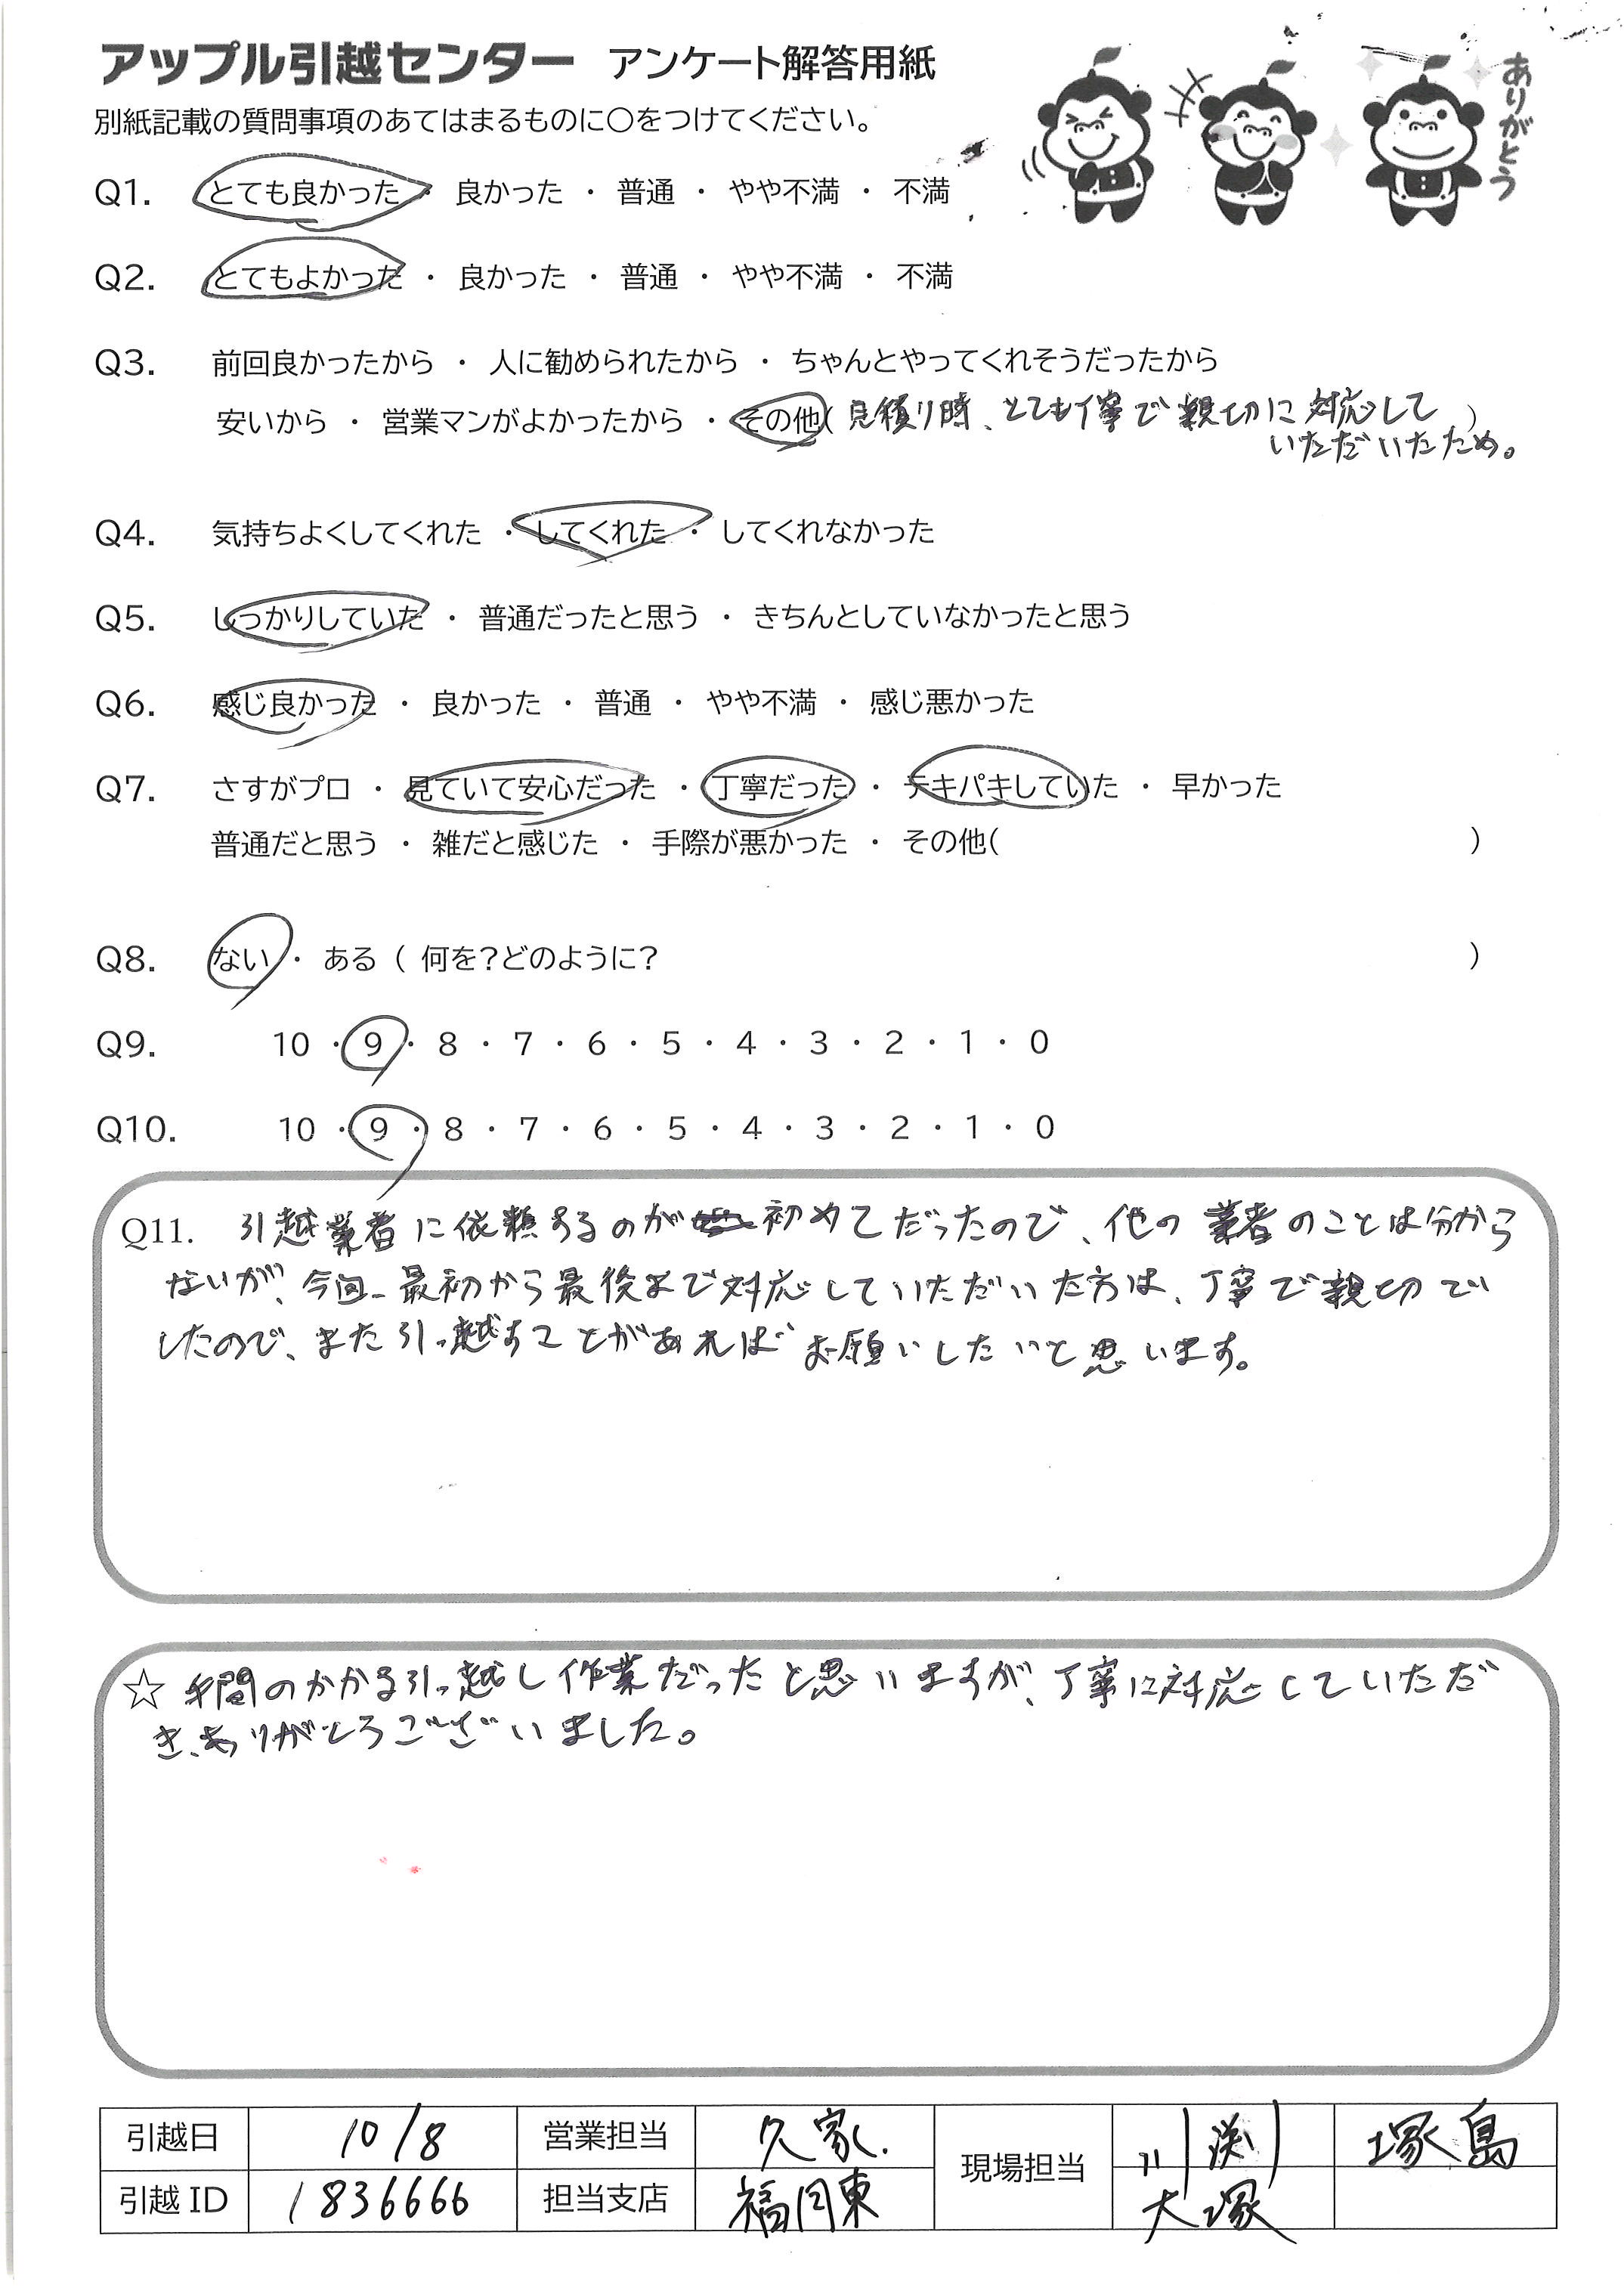 アップル引越センター アンケート解答用紙
ありがとう
別紙記載の質問事項のあてはまるものに〇をつけてください。
Q1. とても良かった ・ 良かった ・ 普通 ・ やや不満 ・ 不満
Q2. とてもよかった ・ 良かった ・ 普通 ・ やや不満 ・ 不満
Q3. 前回良かったから ・ 人に勧められたから ・ ちゃんとやってくれそうだったから
安いから ・ 営業マンがよかったから ・ その他( 見積り時、とても丁寧で親切に対応して )
いただいたため。
Q4. 気持ちよくしてくれた ・ してくれた ・ してくれなかった
Q5. しっかりしていた ・ 普通だったと思う ・ きちんとしていなかったと思う
Q6. 感じ良かった ・ 良かった ・ 普通 ・ やや不満 ・ 感じ悪かった
Q7. さすがプロ ・ 見ていて安心だった ・ 丁寧だった ・ テキパキしていた ・ 早かった
普通だと思う ・ 雑だと感じた ・ 手際が悪かった ・ その他( )
Q8. ない ・ ある ( 何を?どのように? )
Q9. 10 ・ 9 ・ 8 ・ 7 ・ 6 ・ 5 ・ 4 ・ 3 ・ 2 ・ 1 ・ 0
Q10. 10 ・ 9 ・ 8 ・ 7 ・ 6 ・ 5 ・ 4 ・ 3 ・ 2 ・ 1 ・ 0
Q11. 引越業者に依頼するのが初めてだったので、他の業者のことは分から
ないが、今回、最初から最後まで対応していただいた方は、丁寧で親切で
したので、また引っ越すことがあればお願いしたいと思います。
☆ 手間のかかる引っ越し作業だったと思いますが、丁寧に対応していただ
き、ありがとうございました。
引越日 10/8 営業担当 久家 現場担当 川渕 塚島
引越ID 1836666 担当支店 福岡東 大塚